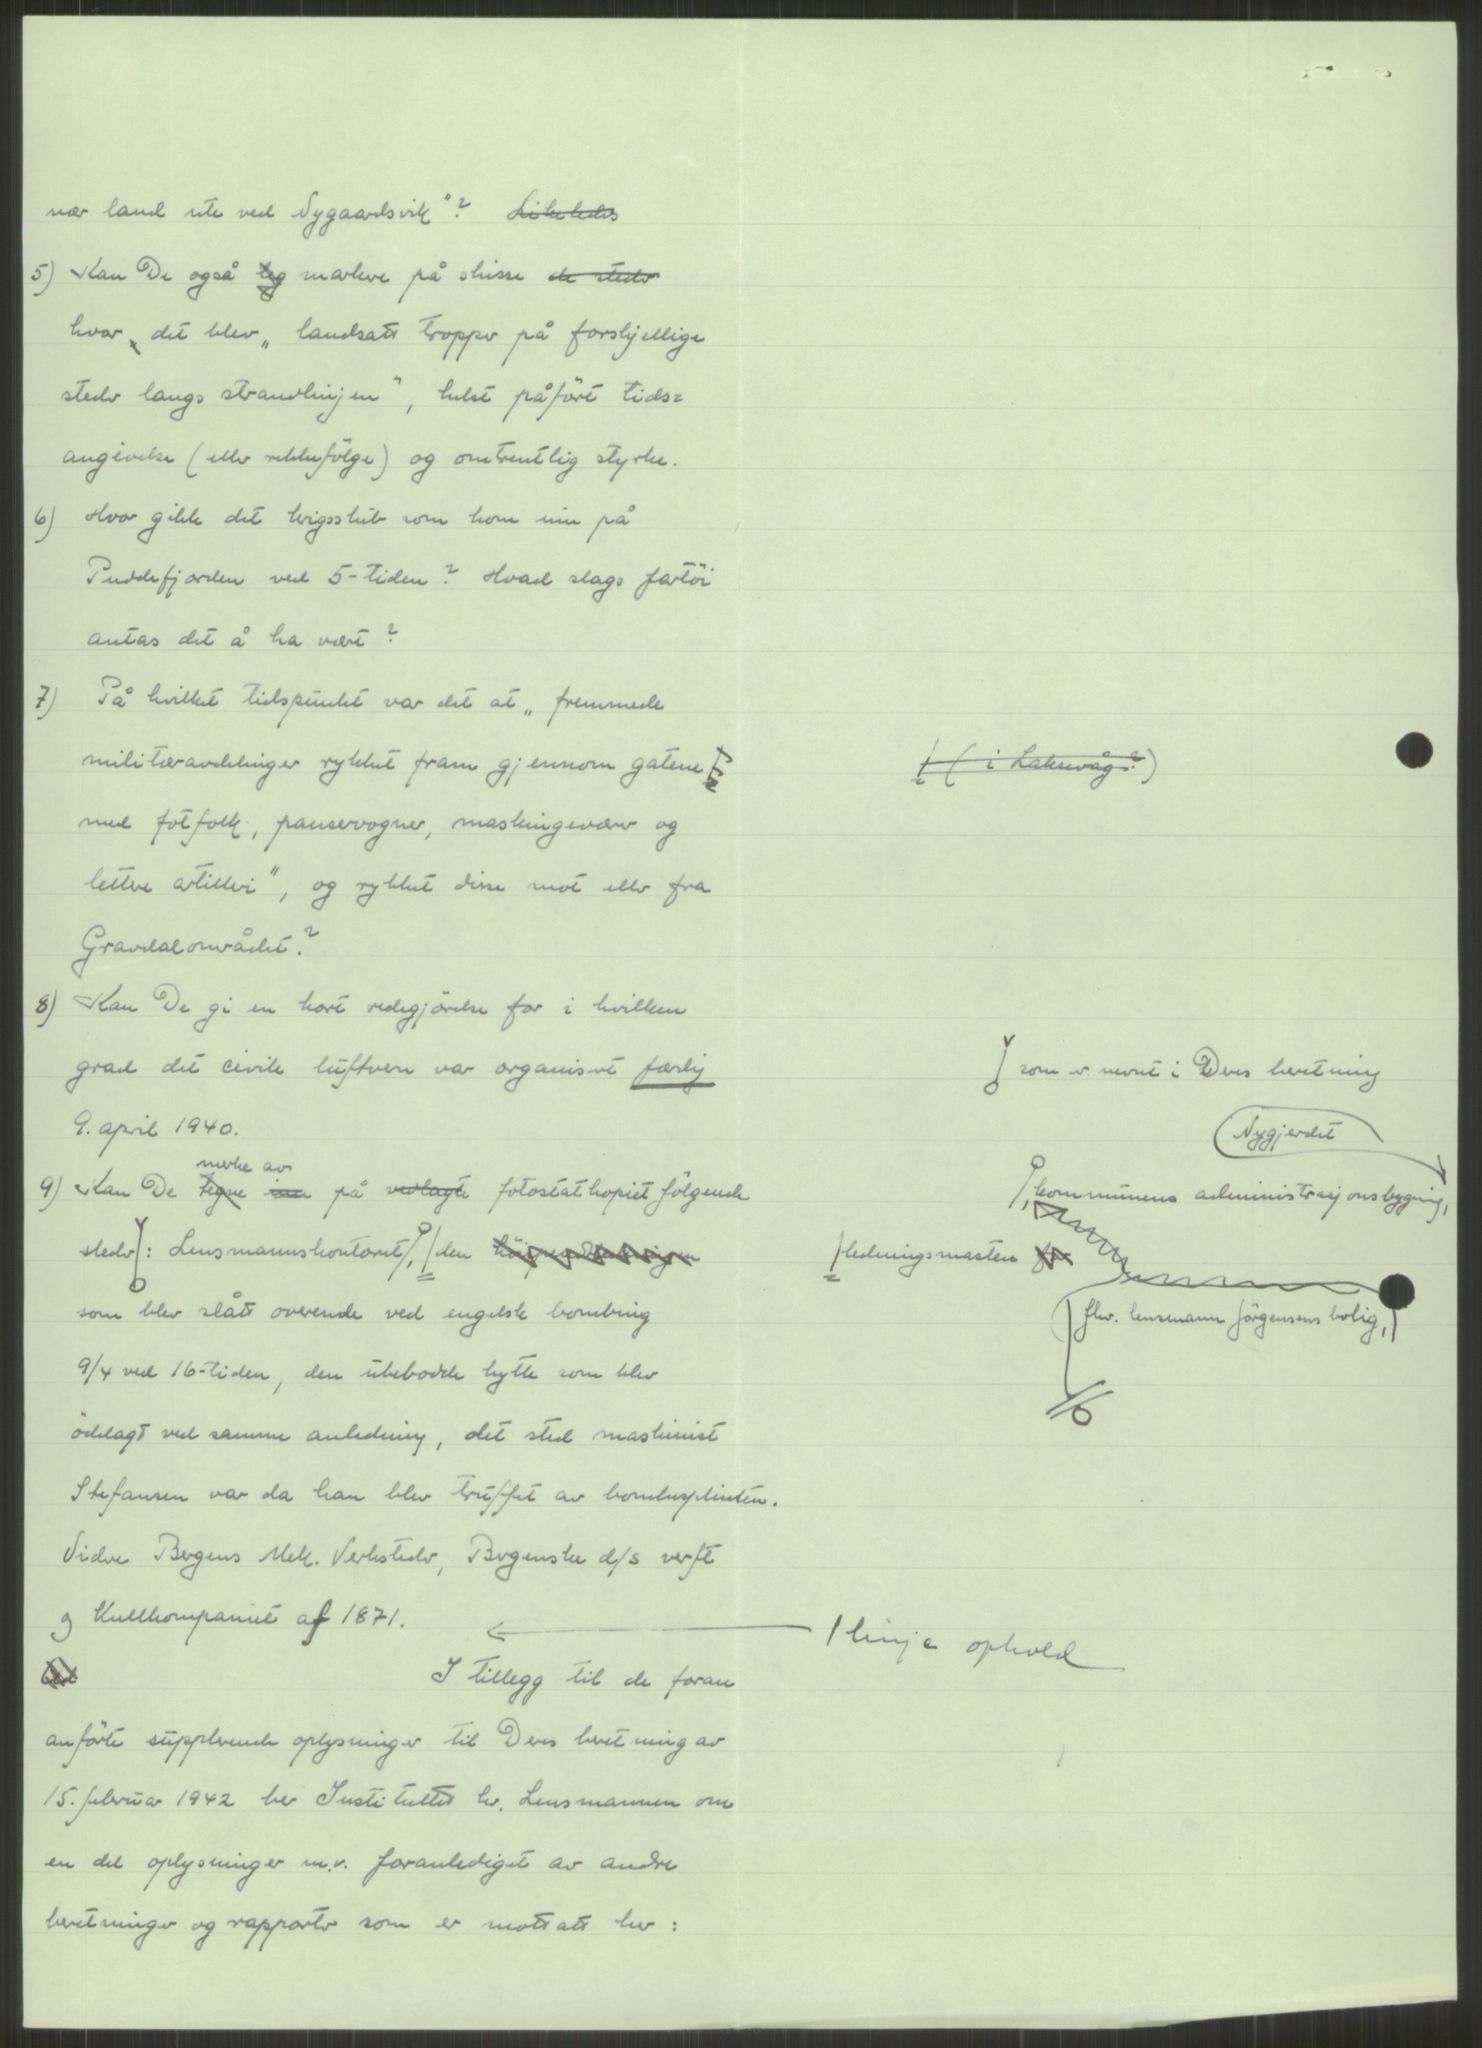 nær land ute ved Nygaardsvik"? Likeledes
5) Kan De også teg markere på skisse de steder
hvor det blev „landsatt tropper på forskjellige
steder langs strandlinjen", helst påført tids=
angivelse (eller rekkefølge) og omtrentlig styrke.
6) Hvor gikk det krigsskib som kom inn på
Puddefjorden ved 5-tiden? Hvad slags fartöi
antas det å ha vært?
7) På hvilket tidspunkt var det at „fremmede
militæravdelinger rykket fram gjennom gatene
(i Laksevåg?)
med fotfolk, panservogner, maskingeværer og
lettere artilleri", og rykket disse mot eller fra
Gravdalområdet?
8) Kan De gi en kort redegjörelse for i hvilken
grad det civile luftvern var organisert færlig
9. april 1940.
som er nevnt i Deres beretning
Nygjerdet
merke av
9) Kan De tegne inn på vedlagte fotostatkopiet fölgende
kommunens administrasjonsbygning,
steder: Lensmannskontoret, den
ledningsmasten for
som blev slått overende ved engelsk bombing
fhv. lensmann Jörgensens bolig,
9/4 ved 16-tiden, den ubebodde hytte som blev
ödelagt ved samme anledning, det sted maskinist
Stefansen var da han blev truffet av bombesplinten.
Videre Bergens Mek. Verksteder, Bergenske d/s verft
og Kullkompaniet af 1871.
1 linje ophold
I tillegg til de foran
anförte supplerende oplysninger til Deres beretning av
15. februar 1942 ber Instituttet hr. Lensmannen om
en del oplysninger m.v. foranlediget av andre
beretninger og rapporter som er mottatt her: